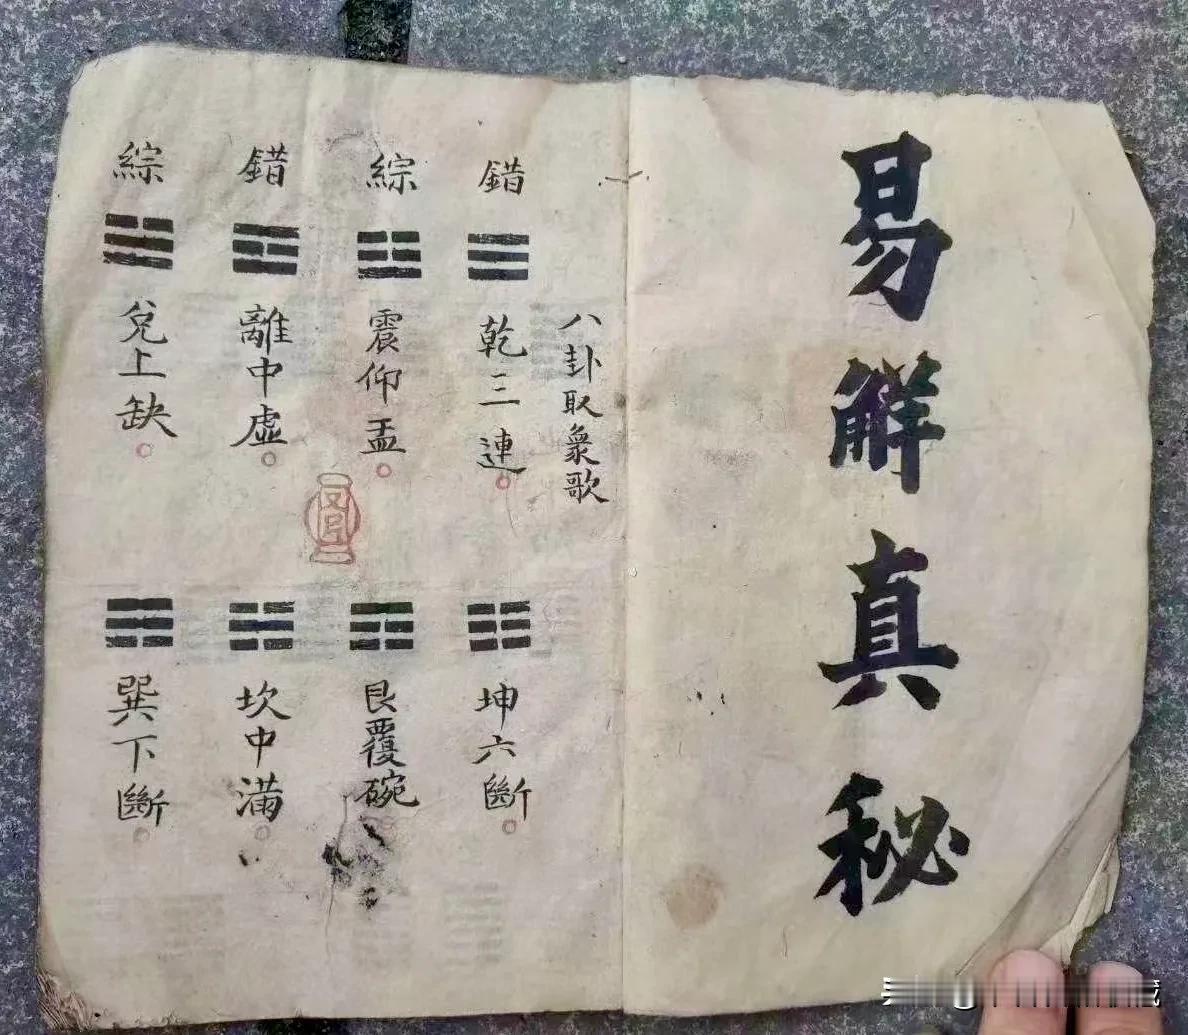 易解真秘
八卦取象歌
錯
乾三連
坤六斷
綜
震仰盂
艮覆碗
錯
離中虛
坎中滿
綜
兌上缺
巽下斷